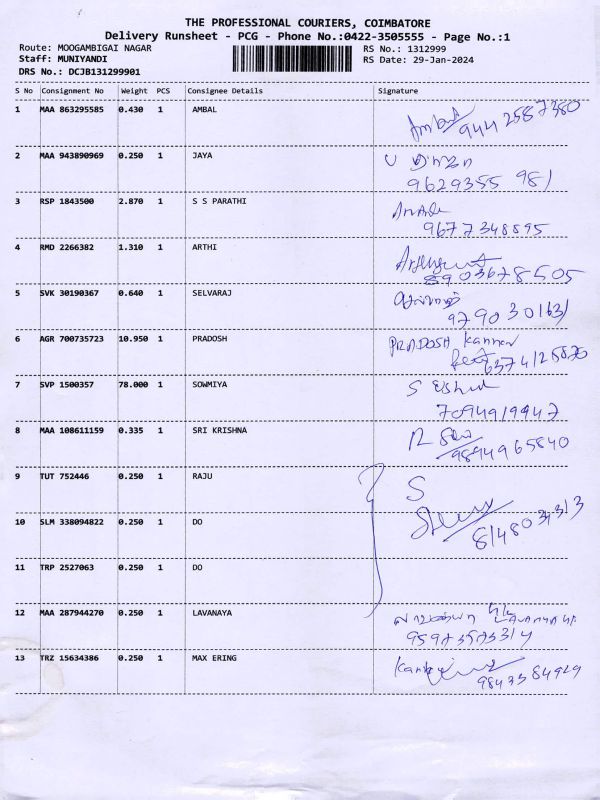 THE PROFESSIONAL COURIERS, COIMBATORE
Delivery Runsheet - PCG - Phone No.:0422-3505555 - Page No.:1
Route: MOOGAMBIGAI NAGAR RS No.: 1312999
Staff: MUNIYANDI RS Date: 29-Jan-2024
DRS No.: DCJB131299901
S No Consignment No Weight PCS Consignee Details Signature
1 MAA 863295585 0.430 1 AMBAL
9442587380
2 MAA 943890969 0.250 1 JAYA
9629355 981
3 RSP 1843500 2.870 1 S S PARATHI
9677348895
4 RMD 2266382 1.310 1 ARTHI
8903678505
5 SVK 30190367 0.640 1 SELVARAJ
9790301631
6 AGR 700735723 10.950 1 PRADOSH PRADOSH Kannan
7 SVP 1500357 78.000 1 SOWMIYA S
7094919947
8 MAA 108611159 0.335 1 SRI KRISHNA
9894965840
9 TUT 752446 0.250 1 RAJU S
10 SLM 338094822 0.250 1 DO
11 TRP 2527063 0.250 1 DO
12 MAA 287944270 0.250 1 LAVANAYA
13 TRZ 15634386 0.250 1 MAX ERING